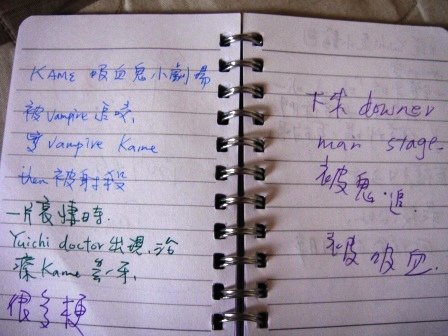 KAME 吸血鬼小劇場
被vampire 追咬,
vampire Kame
then 被射殺
一片哀悽時.
Yuichi doctor出現,治
療Kame 牙.
很多梗
downer
main stage.
被鬼追.
被吸血.